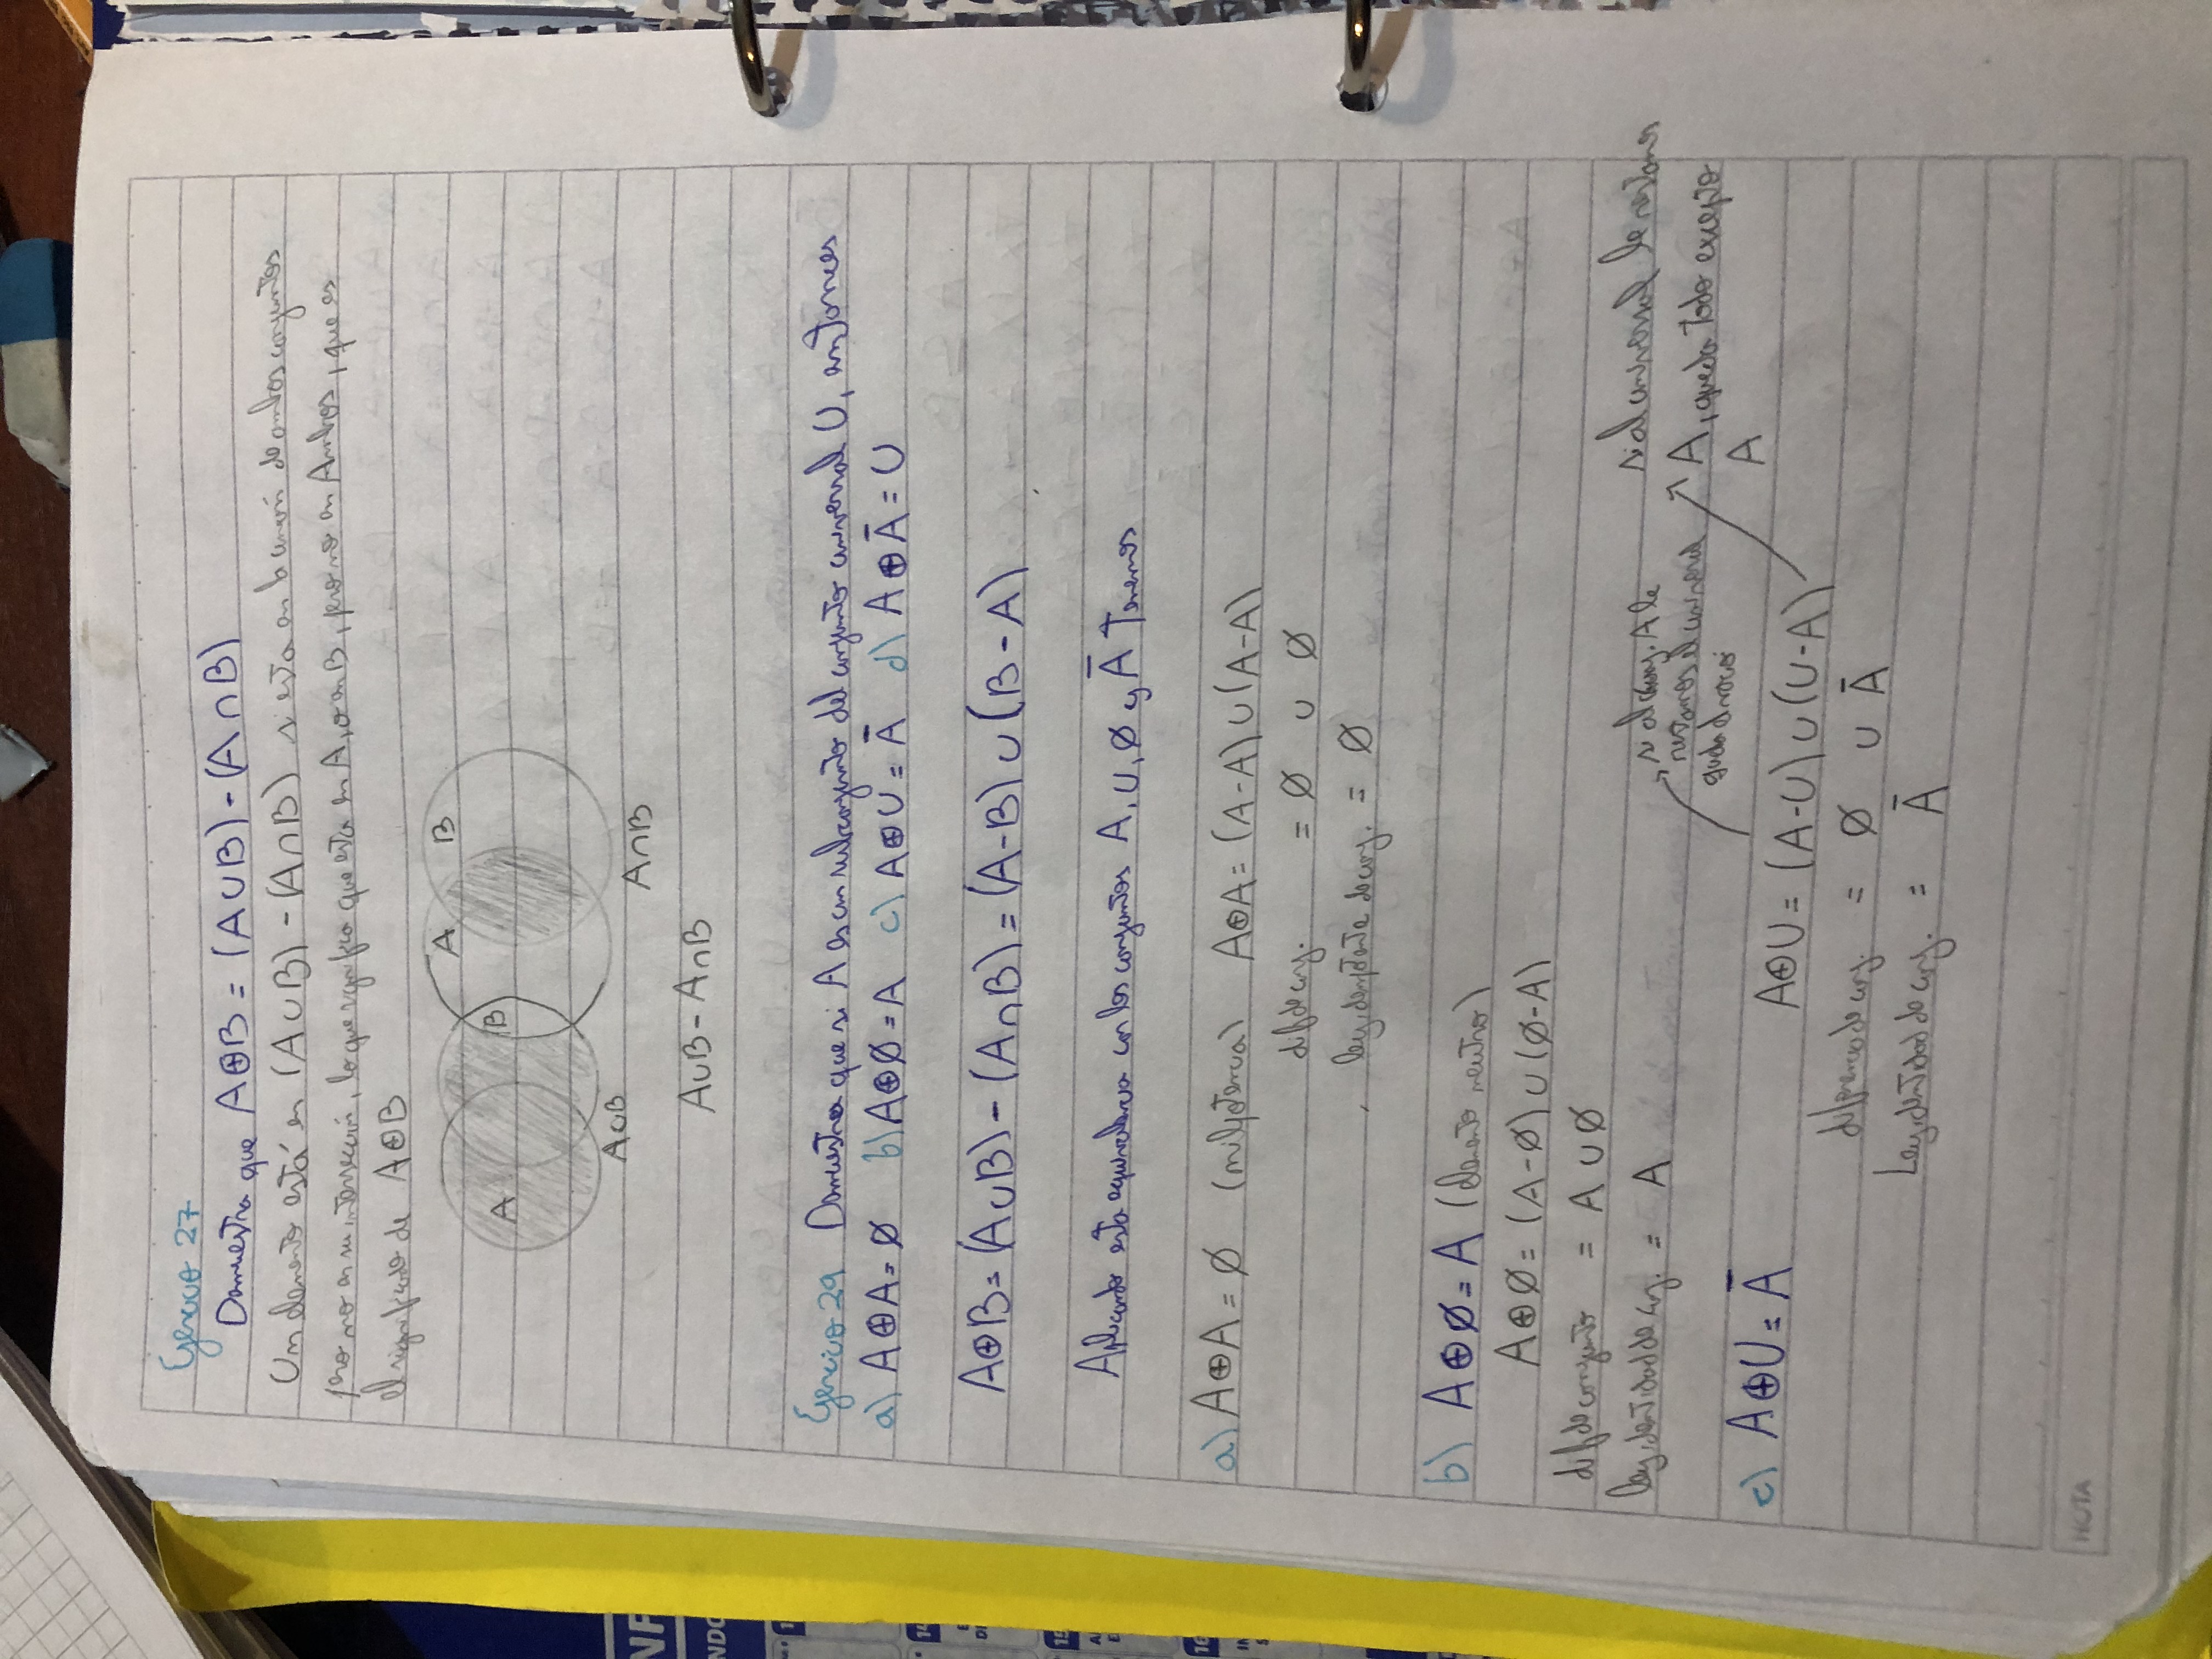 Ejercicio 27
Demuestra que A⊕B = (A∪B)-(A∩B)
Un elemento está en (A∪B) -(A∩B) si esta en la unión de ambos conjuntos
pero no en su intersección, lo que significa que esta en A, o en B, pero no en Ambos, que es
el significado de A⊕B
A B A B
A∪B
A∩B
A∪B - A∩B
Ejercicio 29 Demuestra que si A es un subconjunto del conjunto universal U, entonces
a) A⊕A = Ø b) A⊕Ø = A c) A⊕U = Ā d) A⊕Ā = U
A⊕B = (A∪B) - (A∩B) = (A-B) ∪ (B-A)
Aplicando esta equivalencia con los conjuntos A, U, Ø y Ā Tenemos
a) A⊕A = Ø (nilpotencia) A⊕A = (A-A) ∪ (A-A)
dif de conj. = Ø ∪ Ø
ley idempotente de conj. = Ø
b) A⊕Ø = A (elemento neutro)
A⊕Ø = (A-Ø) ∪ (Ø-A)
dif de conjunto = A ∪ Ø
ley identidad de conj. = A
si al conj. A le
restamos el universal
queda el vacio
si al universal le restamos
A, queda Todo excepto
A
c) A⊕U = Ā A⊕U = (A-U) ∪ (U-A)
diferencia de conj. = Ø ∪ Ā
Ley identidad de conj. = Ā
NOTA
14
15
16